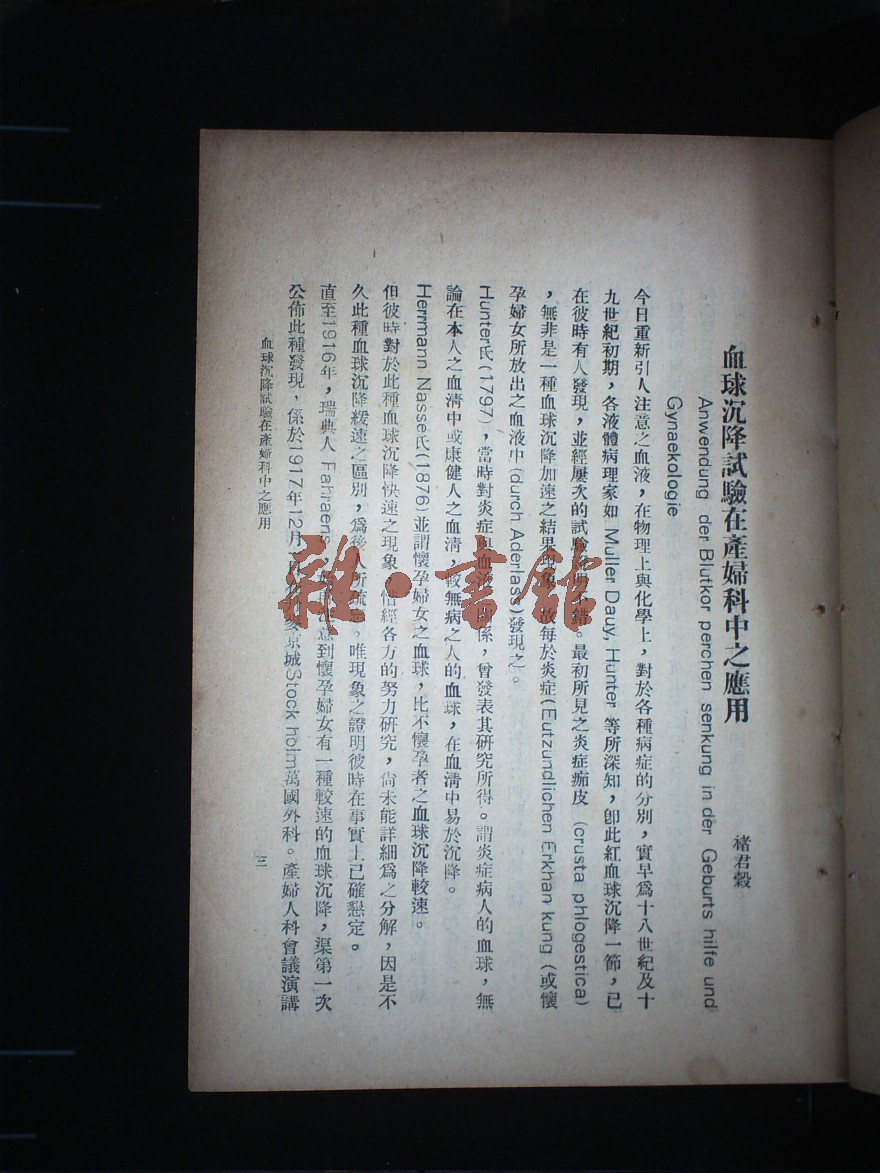 血球沉降試驗在產婦科中之應用
褚君毅
Anwendung der Blutkor perchen senkung in der Geburts hilfe und
Gynaekologie
今日重新引人注意之血液，在物理上與化學上，對於各種病症的分別，實早爲十八世紀及十
九世紀初期，各液體病理家如 Muller Dauy, Hunter 等所深知，卽此紅血球沉降一節，已
在彼時有人發現，並經屢次的試驗 明不錯。最初所見之炎症痂皮 (crusta phlogestica)
，無非是一種血球沉降加速之結果 象，故每於炎症(Eutzundlichen Erkhan kung (或懷
孕婦女所放出之血液中(durch Aderlass)發現之。
Hunter氏(1797)，當時對炎症與血液 關係，曾發表其研究所得。謂炎症病人的血球，無
論在本人之血淸中或康健人之血淸，較無病之人的血球，在血淸中易於沉降。
Herrmann Nasse氏(1876)並謂懷孕婦女之血球，比不懷孕者之血球沉降較速。
但彼時對於此種血球沉降快速之現象，惜經各方的努力研究，尙未能詳細爲之分解，因是不
久此種血球沉降緩速之區別，爲後人所疏忘。唯現象之證明彼時在事實上已確懇定。
直至1916年，瑞典人 Fahraens， 意到懷孕婦女有一種較速的血球沉降，渠第一次
公佈此種發現，係於1917年12月 京城Stock holm萬國外科。產婦人科會議演講
血球沉降試驗在產婦科中之應用
三
雜·書館